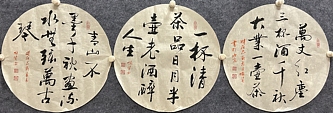 萬丈红尘
三杯酒千秋
大業一壶茶
一杯清
茶品日月半
壶老酒醉
人生
青山不
墨千秋画流
水無弦萬古
琴